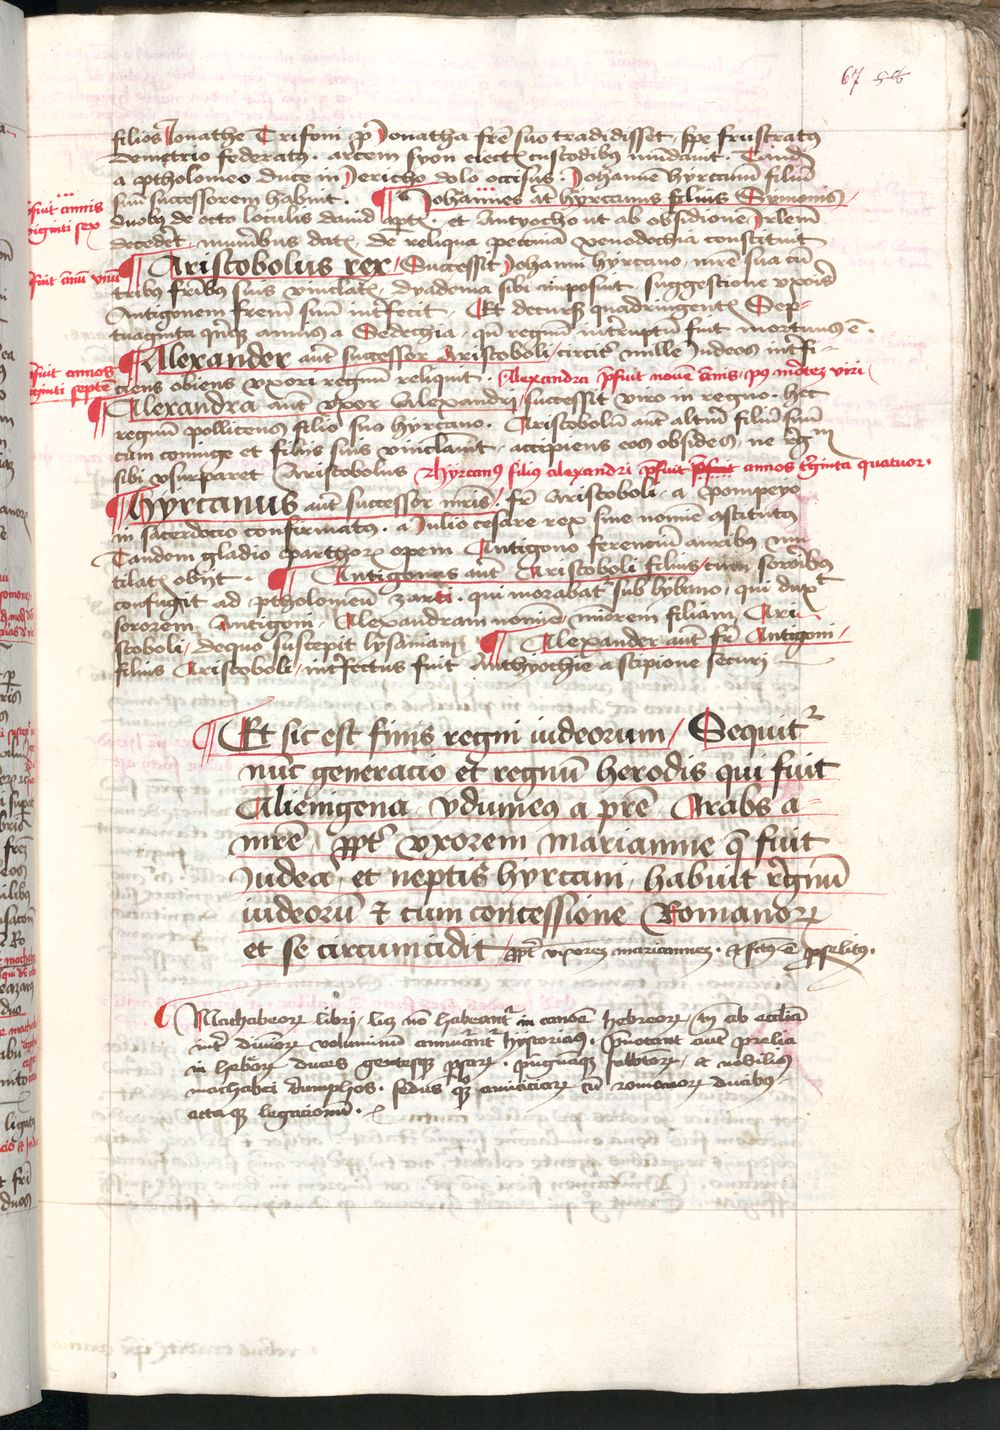 67 58
filios Ionathe Trifoni p̄ Ionatha fr̄e suo tradidisset, spe frustratus
Demetrio federatus . arcem syon eiectis custodibus mundauit . Tandē
a ptholomeo duce in Jericho dolo occisus . Johannē hyrcanū filiū
suū successorem habuit . ¶ Johannes aūt hyrcanus filius Symonis
p̄fuit annis
viginti sex
duobus de octo loculis dauid aptis, et Antyocho ut ab obsidione Jrlem
decederet, muneribus datis, de reliqua pecunia xenodochia constituit
¶ Aristobolus rex / Successit Johanni hyrcano, mr̄e sua cū
p̄fuit annū vnū
tribus fr̄ibus suis vinclatis, dyadema sibi imposuit suggestione vxoris
Antigonem frēm suū int̄fecit . Et decursis quadringentis Sep-
tuaginta q̄nque annis a Sedechia, q̄n regnū intruptū fuit mortuus ē .
¶ Alexander aūt successor Aristoboli / circit̄ mille Iudeos int̄fi-
p̄fuit annos
viginti septē
ciens obiens vxori regnum reliquit . Alexandra p̄fuit nouē annis, p̄ mortez viri
¶ Alexandra aūt vxor Alexandri, successit viro in regno . hec
regnū pollicens filio suo hyrcano . Aristobolū aūt altm̄ filiū suū
cum coniuge et filiis suis vinclauit, accipiens eos obsides, ne regm̄
sibi vsurparet Aristobolus Hyrcanus filius alexandri p̄fuit annos triginta quatuor .
¶ Hyrcanus aūt successor mr̄is / fr̄ Aristoboli, a Pompeyo
in sacerdocio confirmatus . a Julio cesare rex sine nomine ɔstitutus
Tandem gladio parthorum opem Antigono ferenciū auribus mu-
tilatus obijt . ¶ Antigonus aūt Aristoboli filius, cum sororibus
confugit ad ptholomeū . qui morabatr̄ sub lybano, qui dux
sororem Antigoni, Alexandram nomine, minorem filiam Ari-
stoboli, de quo suscepit lysaniam ¶ Alexander aūt fr̄ Antigoni /
filius Aristoboli, int̄fectus fuit Anthyochie a scipione securi
¶ Et sic est finis regni iudeorum / Sequitr̄
nūc generacio et regnū herodis qui fuit
Alienigena, ydumeus a pr̄e Arabs a
mr̄e, ppt̄ vxorem mariamne q̄ fuit
Iudea, et neptis hyrcani, habuit regnū
iudeorū & cum concessione Romanorum
et se circumcidit ppt̄ vxorez mariannez . & fctūs ē pselitus .
¶ Machabeorum libri, licꝫ nō habeantr̄ in canone hebreorum, tn̄ ab ecclia
int̄ diuinorum voluminum annuerantr̄ hystorias . p̄notant aūt prelia
int̄ hebreorum duces gentesque psarum . pugnasque sabbatorum, & nobilius
machabei triumphos . fedus quoque amiciciarum cū romanorum ducibus,
actaque legacionum .